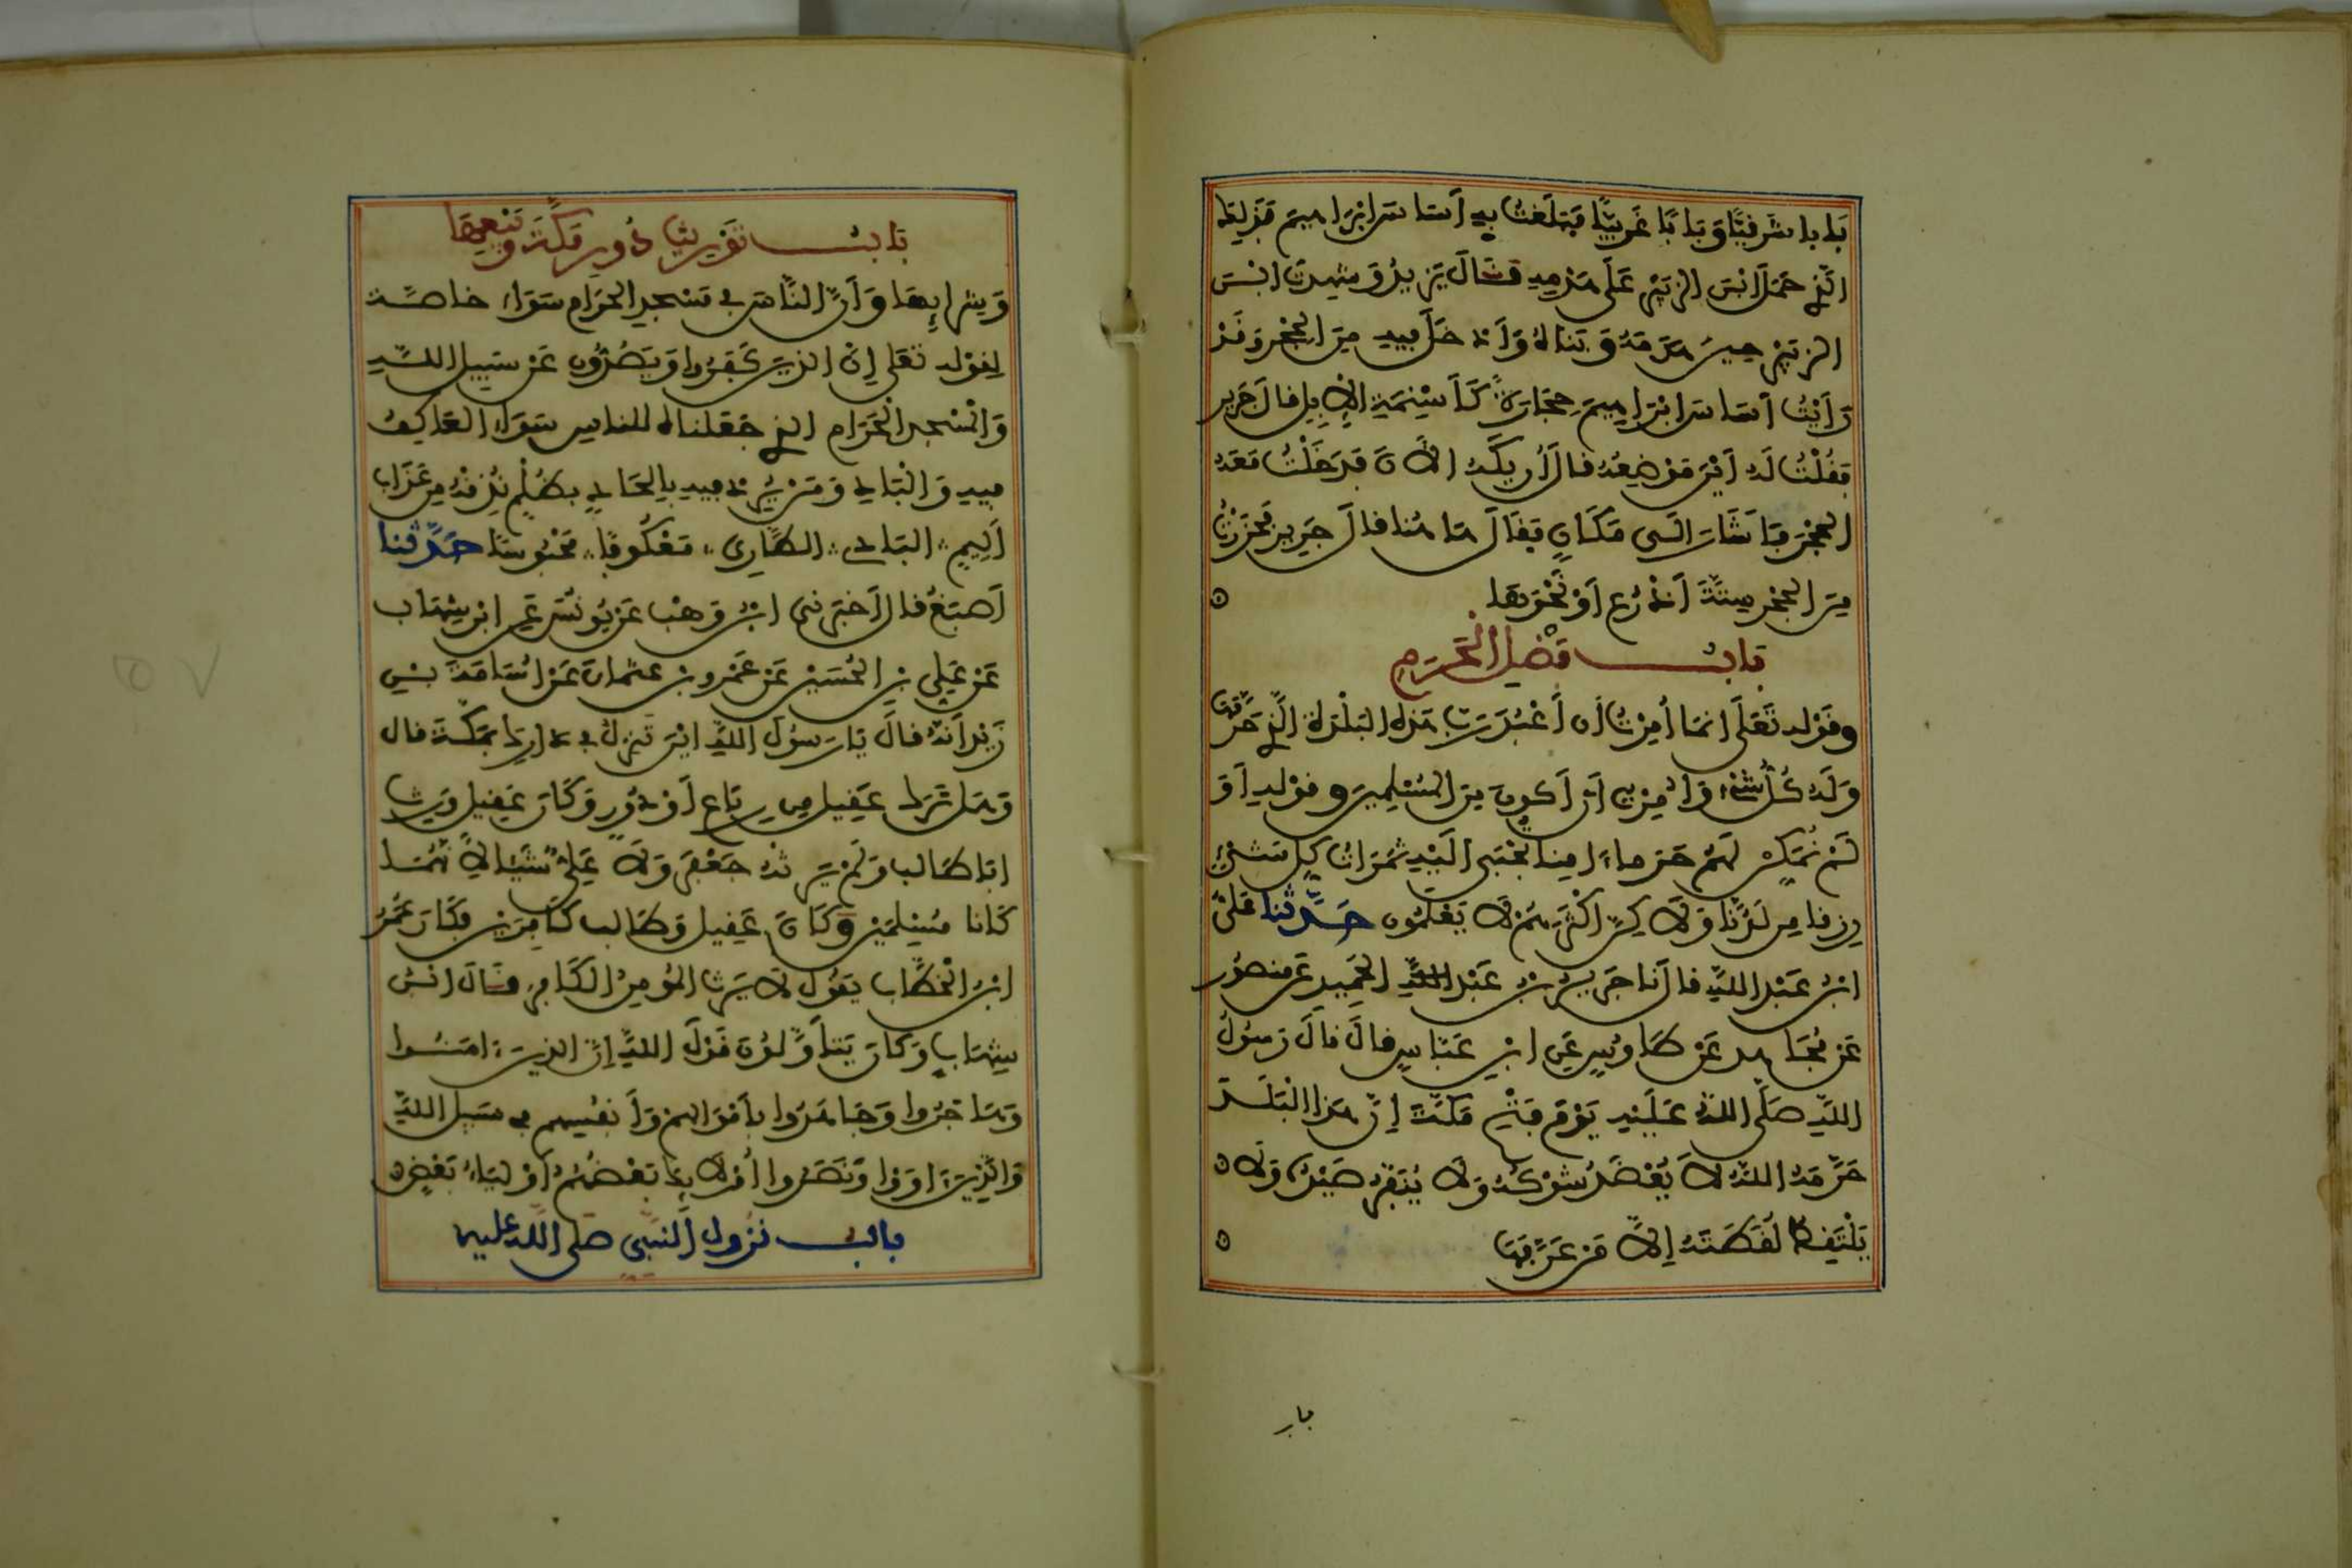 بَابا شَرقيًّا وَبَابًا غَربيًّا فبَلَغتُ به أسَاسَ ابْرَاهِيمَ فَذَلِكَ
الَّذِي حَمَلَ ابْنَ الزبَيْرِ عَلَى هَدْمِهِ قَالَ يَزِيدُ وَشَهِدتُ ابْنَ
الزبَيْرِ حِينَ هَدَمَهُ وَبَنَاهُ وَأدْخَلَ فِيهِ مِنَ الحِجْرِ وَقَدْ
رَأيْتُ أسَاسَ ابْرَاهِيمَ حِجَارَةً كَأسْنِمَةِ الإبِلِ قال جَرير
فَقُلْتُ لَهُ أيْنَ مَوْضِعُهُ قالَ أُرِيكَهُ الآنَ فَدَخَلْتُ مَعَهُ
الحِجْرَ فَأشَارَ الَى مَكَانٍ فَقَالَ هَا هُنا قالَ جَرِير فَحَزَرْتُ
مِنَ الحِجْرِ سِتَّةَ أذْرُعٍ أوْ نَحْوَهَا
بَابُ فَضْلِ الْحَرَمِ
وقَوْله تَعَلَى انمَا أُمِرْتُ أن أعْبُدَ رَبَّ هَذِهِ البَلْدَةِ الَّذِي حَرَّمَهَا
وَلَهُ كُلُّ شَيْءٍ وَأُمِرْتُ أنْ أكونَ مِنَ المُسْلِمِينَ وقوْلِهِ أوَ
لَمْ نُمَكِّن لَهُمْ حَرَماً امِنا يُجْبَى الَيْهِ ثَمَرَاتُ كُلِّ شَيْءٍ
رِزقا مِن لَدُنَّا وَلَكِنَّ أكْثَرَهُمْ لَا يَعْلَمُون حَدَّثنا عَلِيُّ
ابْنُ عَبْدِ اللَّهِ قال نَا جَرِيرُ بْنُ عَبْدِ الحَمِيدِ عَن منصُور
عَنْ مُجَاهِد عَنْ طَاوُسٍ عَنِ ابْنِ عَبَّاسٍ قالَ قالَ رَسُولُ
اللَّهِ صَلَّى اللَّهُ عَلَيْهِ يَوْمَ فَتْحِ مَكَّةَ إنَّ هَذَا البَلَدَ
حَرَّمَهُ اللَّهُ لَا يُعْضَدُ شَوْكُهُ وَلَا يُنَفَّرُ صَيْدُهُ وَلَا
يَلْتَقِطُ لُقَطَتَهُ إلَّا مَن عَرَّفَهَا
باب
بَابُ تَوْرِيثِ دُورِ مَكَّةَ وَبَيْعِهَا
وَشِرَائِهَا وَأنَّ النَّاسَ في مَسْجِدِ الحَرَامِ سَوَاء خاصَّة
لِقوْله تَعَلى إنَّ الذِينَ كَفَرُوا وَيَصُدُّونَ عَنْ سَبِيلِ اللَّهِ
وَالْمَسْجِدِ الْحَرَامِ الذِي جَعَلناهُ للناسِ سَوَاءً العَاكِفُ
فِيهِ وَالْبَادِي وَمَن يُرِدْ فِيهِ بِالحَادٍ بِظُلْمٍ نُذِقْهُ مِن عَذَابٍ
ألِيمٍ البَادِي الطَّارِي مَعْكُوفًا مَحْبُوسًا حَدَّثنا
أصْبَغُ قال أخبَرَنِي ابْنُ وَهْبٍ عَنْ يُونُسَ عَن ابْنِ شِهَاب
عَنْ عَلِيِّ بْنِ الحُسَيْنِ عَنْ عَمْرِو بْنِ عثمَانَ عَنْ أسَامَةَ بْنِ
زَيْدٍ أنَّهُ قالَ يَا رَسُولَ اللَّهِ ايْنَ تَنْزِلُ في دَارِكَ بِمَكَّةَ قال
وَهَل تَرَكَ عَقِيل مِن رِبَاعٍ أوْ دُورٍ وَكَانَ عَقِيل وَرِثَ
ابَا طَالب وَلَمْ يَرِثْهُ جَعْفَر وَلَا عَلِيٌّ شَيْئا لأنَّهُمَا
كَانا مُسْلِمَيْنِ وَكَانَ عَقِيل وَطَالب كَافِرَيْنِ فكَانَ عُمَرُ
ابْنُ الْخَطَّابِ يَقُولُ لَا يَرِثُ المُؤمِنُ الكَافِرَ قَالَ ابْنُ
شِهَابٍ وَكَانَ يَتَأوَّلُونَ قَوْلَ اللَّهِ إنَّ الذِينَ ءامَنُوا
وَهَاجَرُوا وَجَاهَدُوا بأمْوَالِهِمْ وَأنفُسِهِمْ في سَبِيلِ اللَّهِ
وَالَّذِينَ ءاوَوْا وَنَصَرُوا أُولَئِكَ بَعْضُهُمْ أوْلِيَاءُ بَعْضٍ
بابُ نزول النَّبِي صَلى اللَّه عليه
٥٧